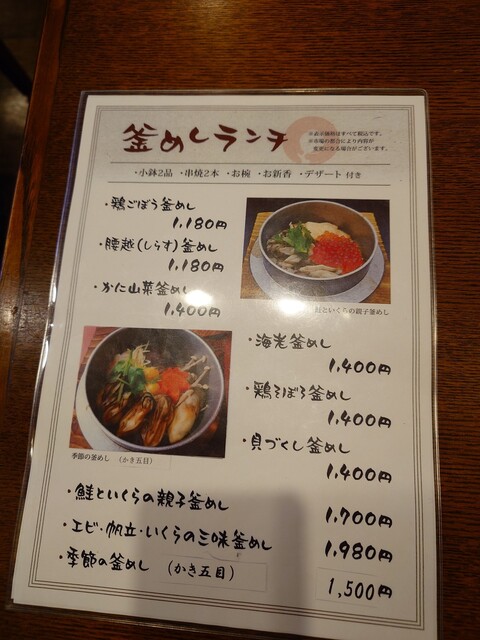 釜めしランチ
※表示価格はすべて税込です。
※市場の都合により内容が
変更になる場合がございます。
・小鉢2品 ・串焼2本 ・お椀 ・お新香 ・デザート 付き
・鶏ごぼう釜めし
1,180円
・腰越(しらす)釜めし
1,180円
・かに山菜釜めし
1,400円
鮭といくらの親子釜めし
・海老釜めし
1,400円
・鶏そぼろ釜めし
1,400円
・貝づくし釜めし
1,400円
季節の釜めし (かき五目)
・鮭といくらの親子釜めし
1,700円
・エビ・帆立・いくらの三味釜めし
1,980円
・季節の釜めし (かき五目)
1,500円